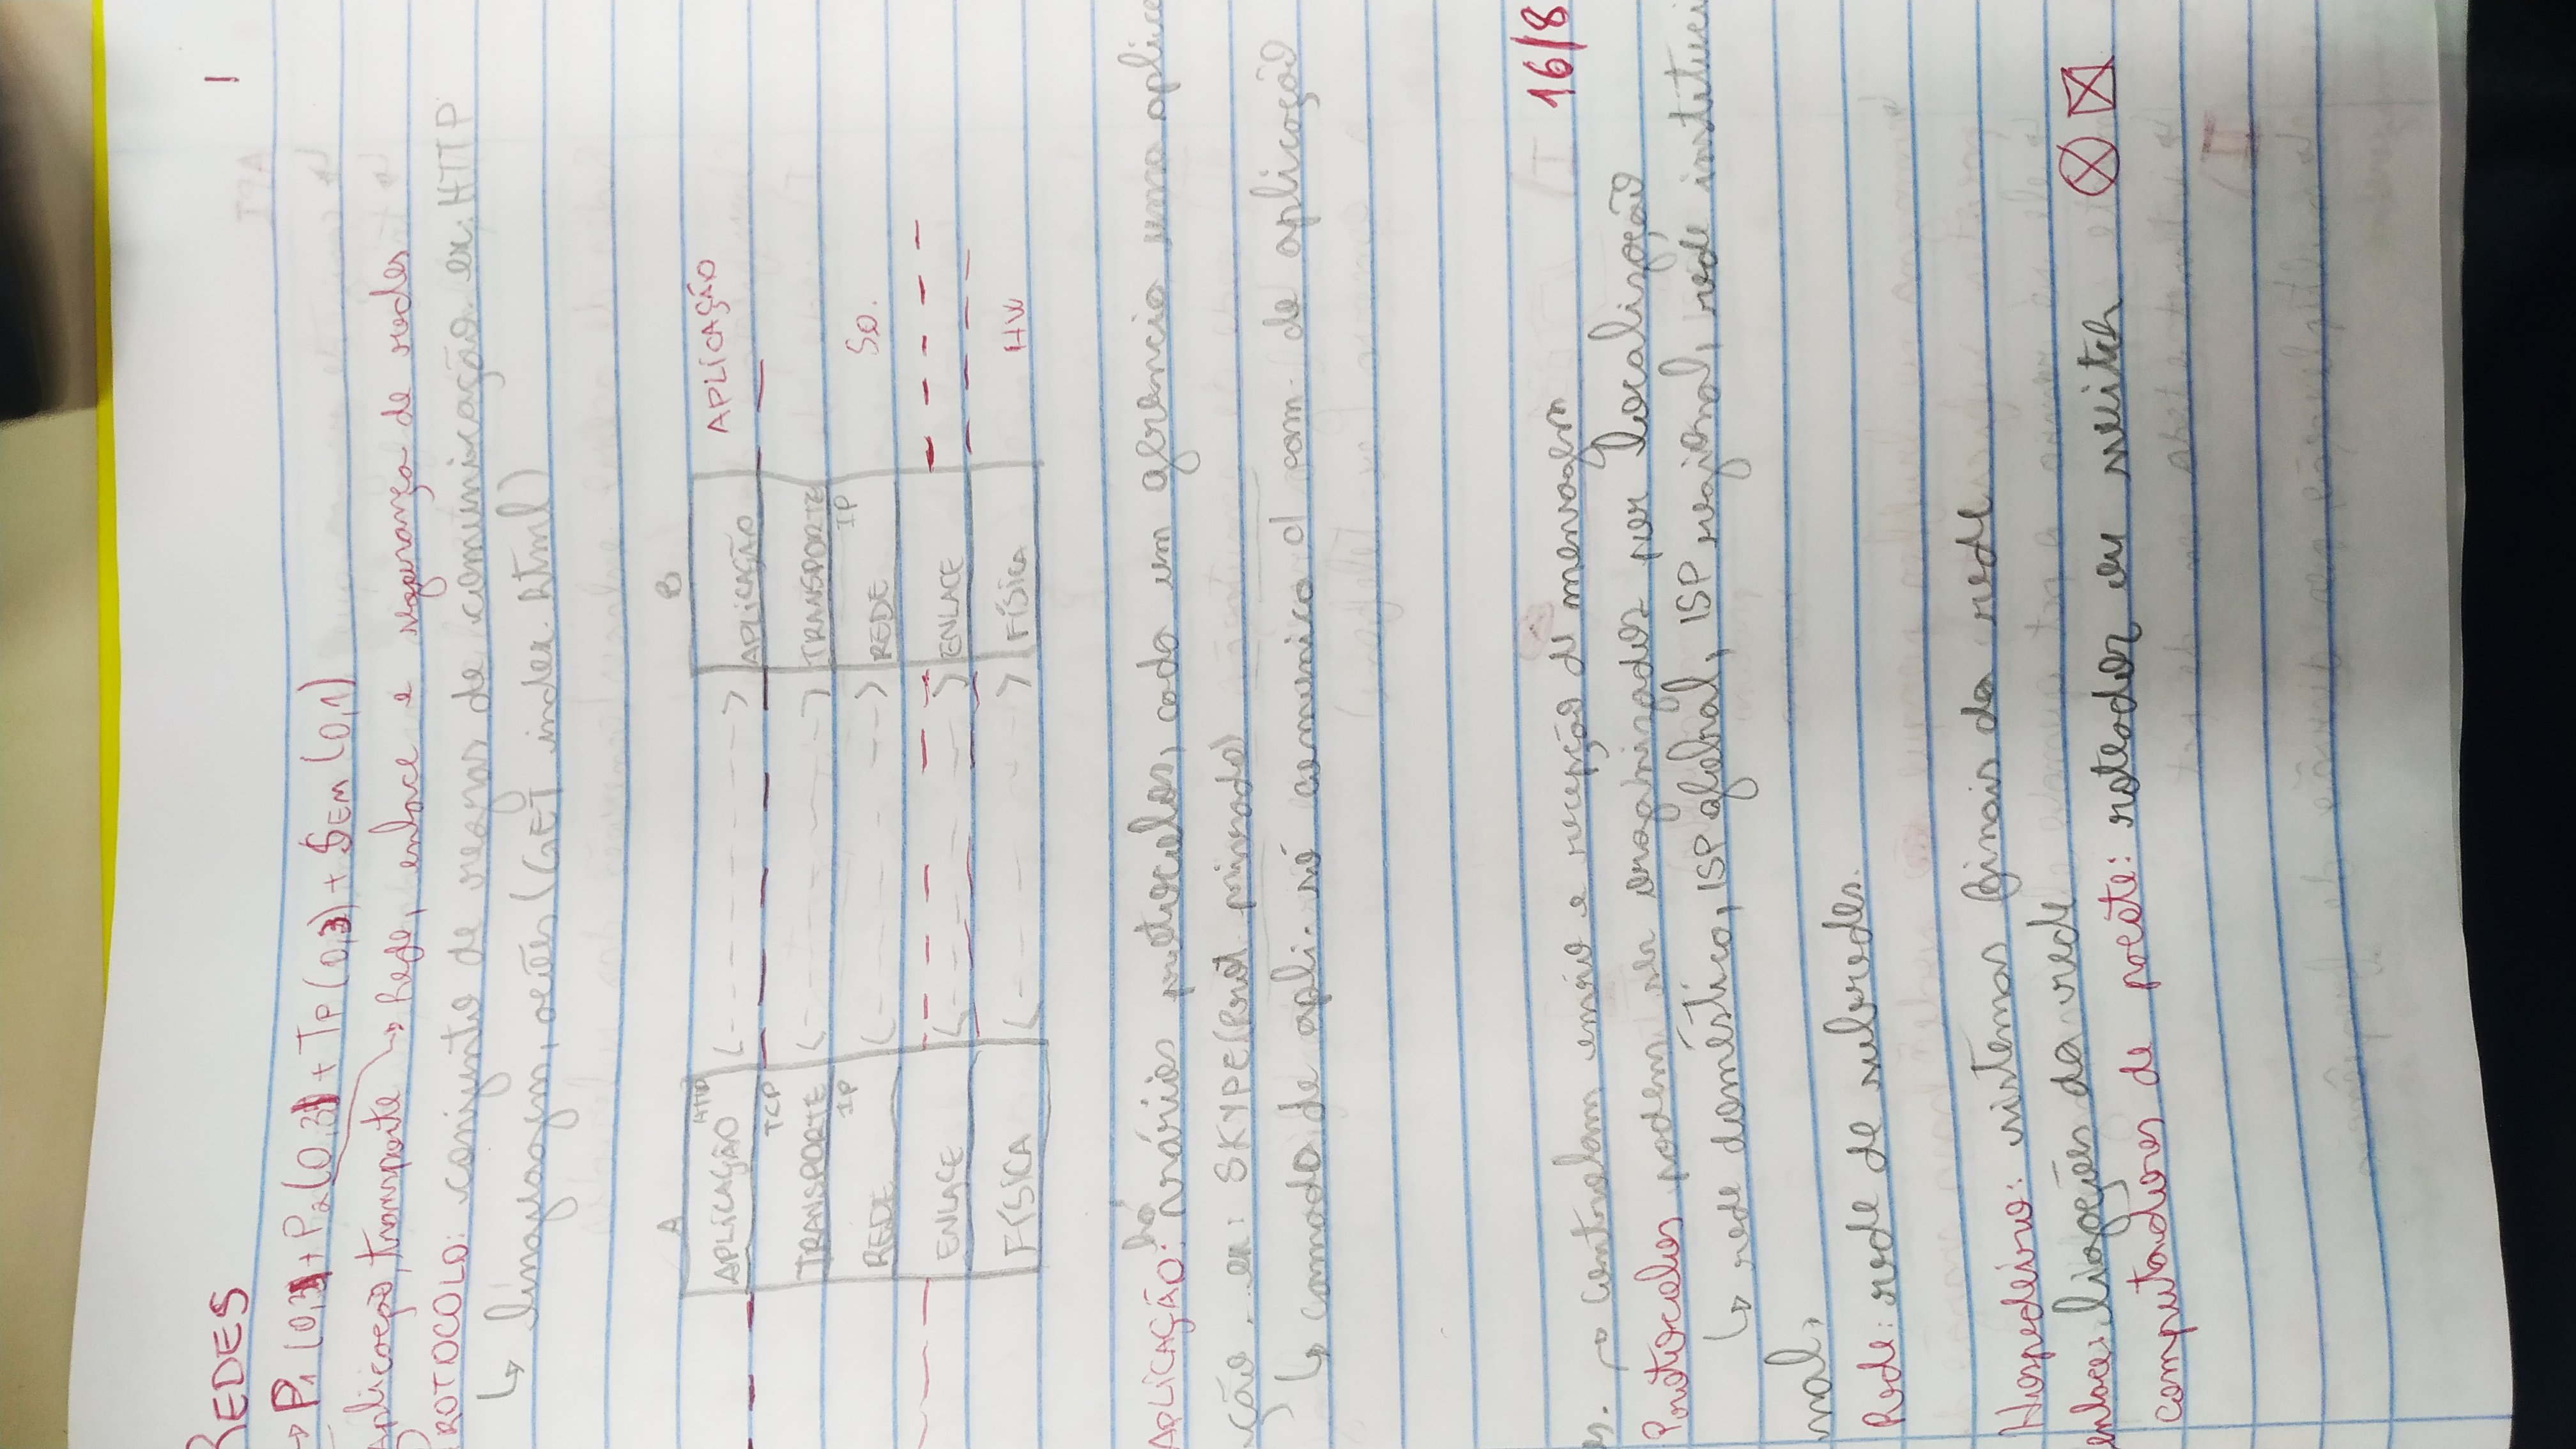 REDES 1
→ P1 (0,3) + P2 (0,3) + TP (0,3) + SEM (0,1)
Aplicação, transporte ↳ Rede, enlace e segurança de redes
PROTOCOLO: conjunto de regras de comunicação. ex: HTTP
↳ linguagem, ações (GET index.html)
A B
HTTP
APLICAÇÃO <- - - - - - -> APLICAÇÃO APLICAÇÃO
TCP
TRANSPORTE <- - - - -> TRANSPORTE
IP IP
REDE <- - - - -> REDE SO.
ENLACE <- - - - -> ENLACE
FÍSICA <- - - - -> FÍSICA HW
APLICAÇÃO: há vários protocolos, cada um gerencia uma aplica
ção. ex: SKYPE (Prot privado)
↳ camada de apli. só comunica c/ cam. de aplicação
16/8
→ Controlam envio e recepção de mensagem
Protocolos podem ser organizados por localização
↳ rede doméstica, ISP global, ISP regional, rede instituci
nal,
Rede: rede de subredes.
Hospedeiro: sistemas finais da rede
enlace: ligações da rede
computadores de pacote: roteador ou switch